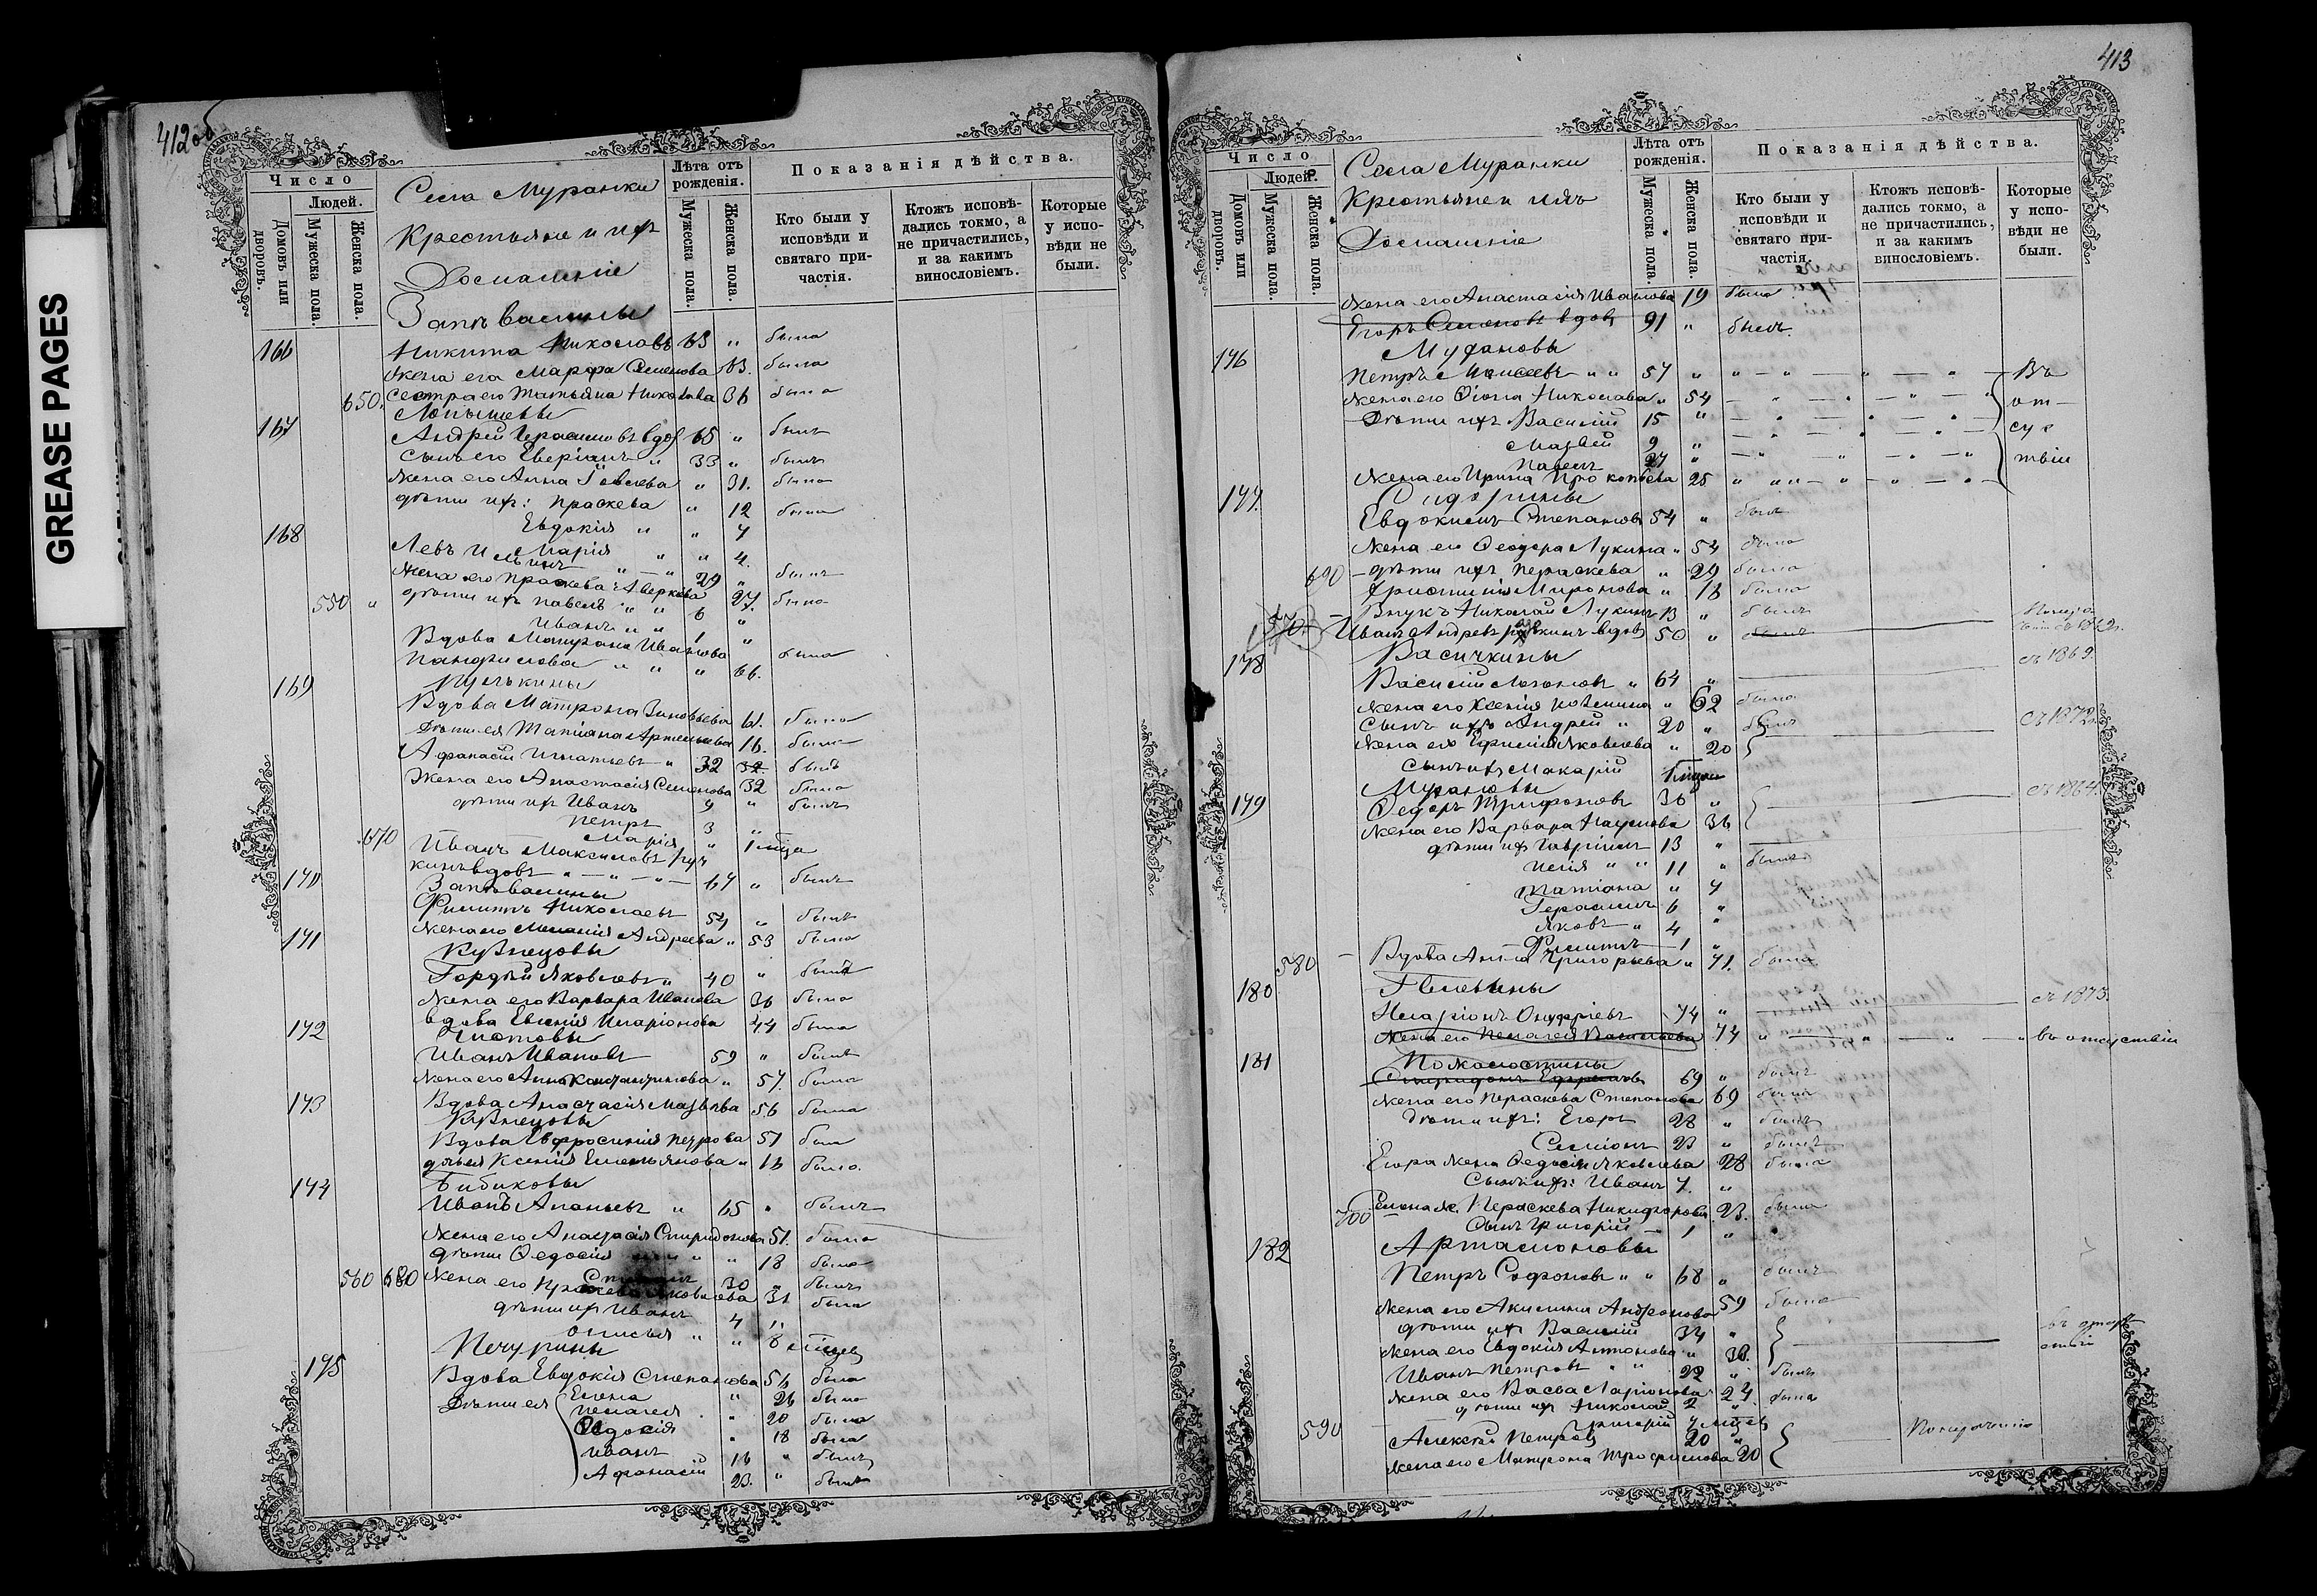 GREASE PAGES
412об
Число
Людей.
Домовъ или дворовъ.
Мужеска пола.
Женска пола.
Села Муранки
Крестьяне и ихъ
Домашніе
Лѣта отъ рожденія.
Мужеска пола.
Женска пола.
Показанія дѣйства.
Кто были у исповѣди и святаго причастія.
Ктожъ исповѣдались токмо, а не причастились, и за какимъ винословіемъ.
Которые у исповѣди не были.
166
Никита Николаевъ 63 " была
жена его Марфа Семенова 63. была
650. сестра его Татьяна Николаева 36 была
167
Андрей Герасимовъ вдов 65 " былъ
сынъ его " 33 " былъ
жена его Анна " 31. была
дѣти ихъ: Праскева " 12 была
Евдокія " " 7
168
Марія " " 4.
Левъ " 29 " былъ
жена его Праскева Аверкіева 27. была
550 " дѣти ихъ Павелъ " " 6 "
Иванъ " " 1 "
Вдова Матрона Иванова
Панфилова " " " 66. была
169
Вдова Матрона Зиновьева 61. была
Дочь ея Татіана Артемьева 16. была
Афанасій Игнатьевъ " 32 былъ
Жена его Анастасія Семенова 32 была
дѣти ихъ Иванъ 9 " былъ
Петръ 3 "
670 Марія " 1 мѣца
Иванъ Максимовъ
вдовъ " — " — " — 67 " былъ
170
Филиппъ Николаевъ 54 " былъ
жена его Меланія Андреева " 53 была
171
Кузнецовы
Гордѣй Яковлевъ " 40 " былъ
жена его Варвара Иванова 36 была
вдова Евгенія Иларіонова 44 была
172
Чистовы
Иванъ Ивановъ 59 " былъ
жена его Анна Константинова " 57. была
173
Вдова Анастасія 56 была
Кузнецовы
Вдова Евфросинія Петрова 51 была
дочь ея Ксенія Емельянова " 16 была.
174
Бибиковы
Иванъ Ананьевъ " 65 " былъ
жена его Анастасія Спиридонова 51. была
дѣти Ѳедосія " " " 18 была
560 680 30 " былъ
жена его Праскева Яковлева 31 была
дѣти ихъ Иванъ 4 "
" " 8 мѣцев
175
Печурины
Вдова Евдокія Степанова 56 была
Дѣти ея Елена " 26 была
Пелагея " 20 была
Ѳедосія " 18 была
Иванъ 16 " былъ
Афанасій 23. " былъ
413
Число
Людей.
Домовъ или дворовъ.
Мужеска пола.
Женска пола.
Села Муранки
Крестьяне и ихъ
Домашніе
Лѣта отъ рожденія.
Мужеска пола.
Женска пола.
Показанія дѣйства.
Кто были у исповѣди и святаго причастія.
Ктожъ исповѣдались токмо, а не причастились, и за какимъ винословіемъ.
Которые у исповѣди не были.
жена его Анастасія Иванова 19 была
Егоръ Семеновъ вдов 91 " былъ
176
Петръ Моисеевъ " " 57 " Въ
жена его Николаева " 54 от-
Дѣти ихъ Василій 15 " сут
Матвей 9 "
Павелъ 27 " твіи
жена его Ирина Прокопьева 25
177.
Сидорины
Евдокимъ Степановъ 54 " былъ
жена его Ѳеодора Лукина " 54 была
690 дѣти ихъ Пераскева " 29 была
Миронова " 18 была
Внукъ Николай Лукинъ 13 " былъ
570. Иванъ Андревъ вдов 50 " былъ
178
Васичкины
Василій " 64 " съ 1869.
жена его Ксенія Козмина " 62 была
Сынъ ихъ Андрей " 20 " былъ съ 1872.
жена его Яковлева " 20
Сынъ ихъ Макарій 1 мѣцъ
179
Ѳедоръ Трифоновъ 36 " съ 1864.
жена его Варвара Наумова 36
дѣти ихъ Гавріилъ 13 "
Илія " " 11 " былъ
Татіана " 7
Герасимъ 6 "
Яковъ " 4 "
Филиппъ 1 "
580 Вдова Анна Григорьева " 71. была
180
Иларіонъ Онуфріевъ 74 " съ 1873.
жена его Пелагея Васильева 74 въ отсутствіи
181
Пожалостины
Спиридонъ Ефремовъ 69 " былъ
жена его Пераскева Степанова 69 была
Дѣти ихъ: Егоръ 28 " былъ
Симіонъ 23 " былъ
Егора жена Ѳедосія Яковлева 28 была
Сынъ ихъ: Иванъ 7. "
700 Семена ж. Пераскева Никифорова 23. была
Сынъ Григорій 1 "
182
Артамоновы
Петръ Софоновъ " " 68 " былъ
жена его Акилина Андронова 59 была
дѣти ихъ Василій 34 " въ отсут
жена его Евдокія Антонова " 30. ствіи
Иванъ Петровъ " " 22 " былъ
жена его Васса Ларіонова 24. была
дѣти ихъ Николай 2 "
Григорій 7 мѣцев
590 Алексѣй Петровъ 20 "
жена его Матрона Трофимова 20